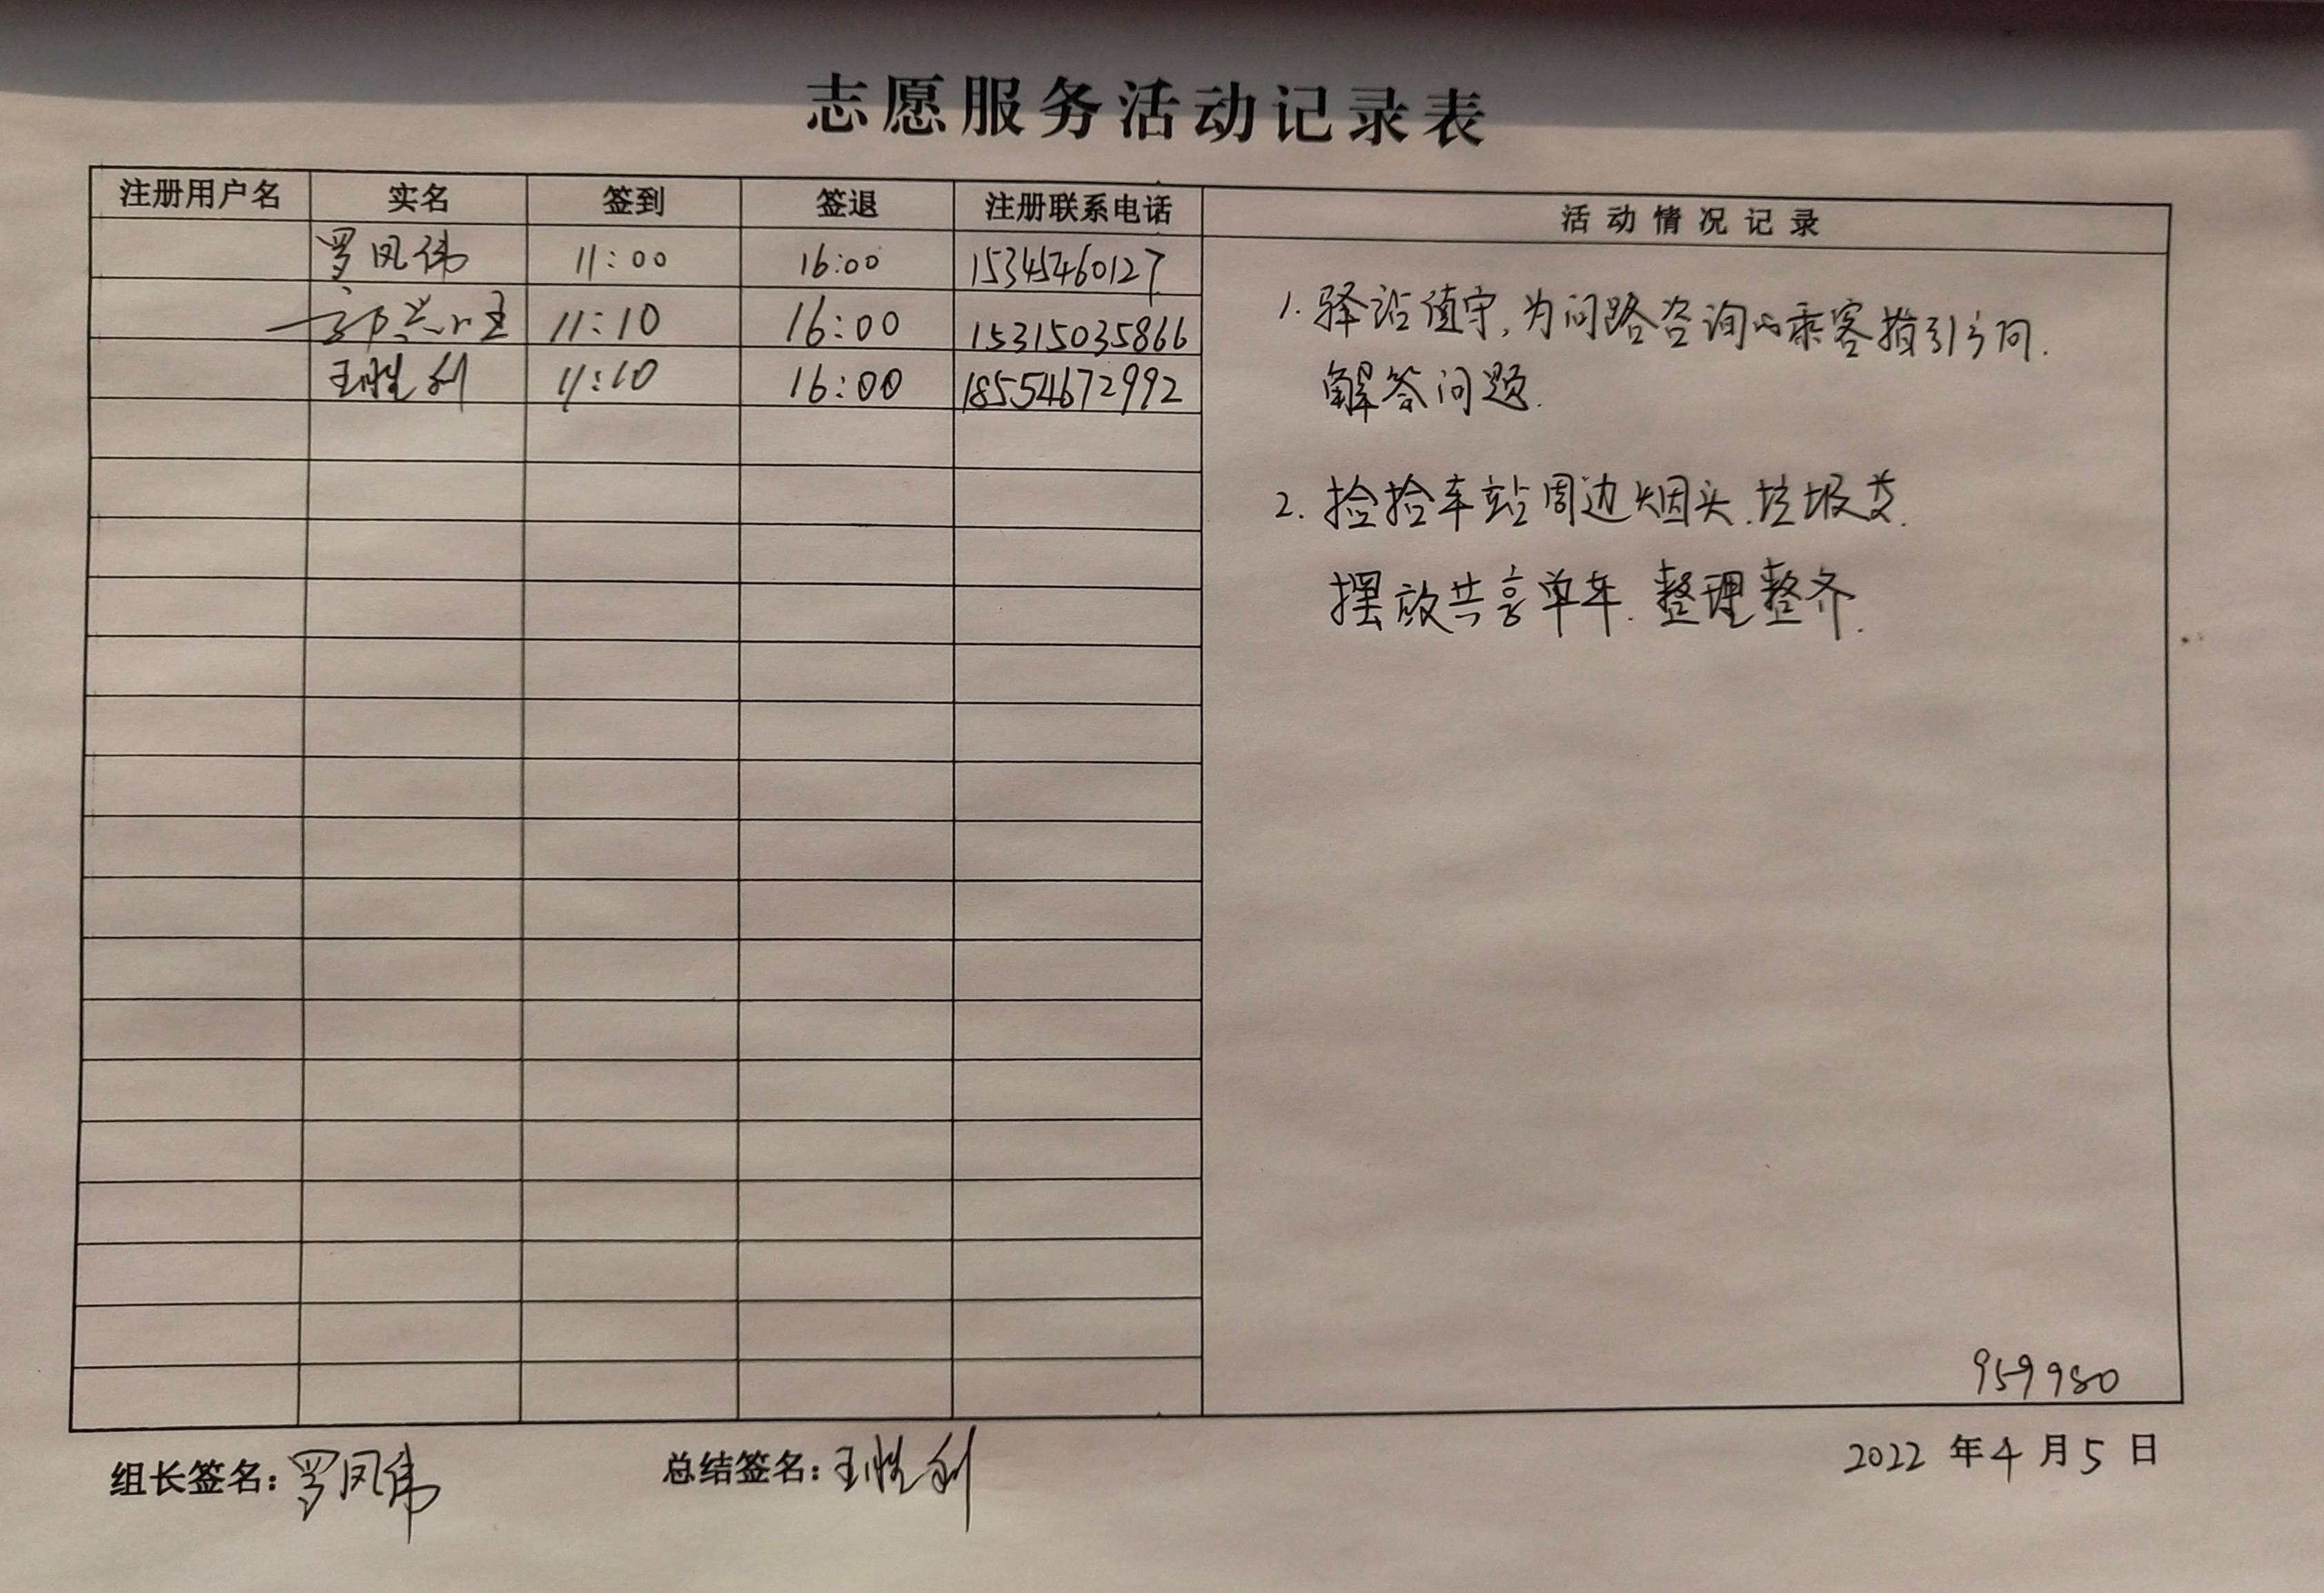 志愿服务活动记录表
注册用户名 实名 签到 签退 注册联系电话 活动情况记录
罗凤伟 11:00 16:00 15345460127
11:10 16:00 15315035866
王胜利 11:10 16:00 18554672992
1. 驿站值守,为问路咨询的乘客指引方向.
解答问题.
2. 捡拾车站周边烟头.垃圾
摆放共享单车.整理整齐.
959980
组长签名:罗凤伟 总结签名:王胜利 2022 年 4 月 5 日